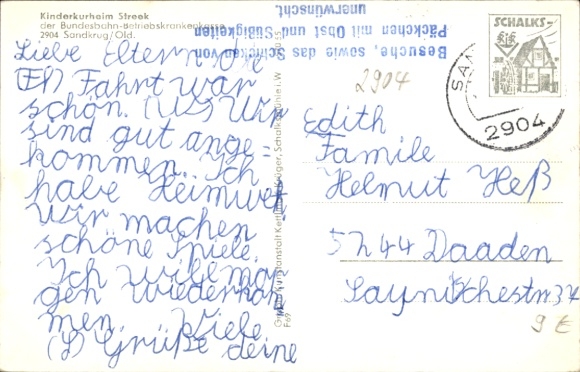 Kinderkurheim Streek
der Bundesbahn-Betriebskrankenkasse
2904 Sandkrug/Old.
Besuche, sowie das Schicken von
Päckchen mit Obst und Süßigkeiten
unerwünscht.
SCHALKS-
2904
2904
Liebe Eltern
Fahrt war
schön. Wir
sind gut ange=
kommen. Ich
habe Heimweh
Wir machen
schöne Spiele.
Ich will mor
gen wiederkom
men. Viele
Grüße deine
Edith
Familie
Helmut Heß
5244 Daaden
37
9 €